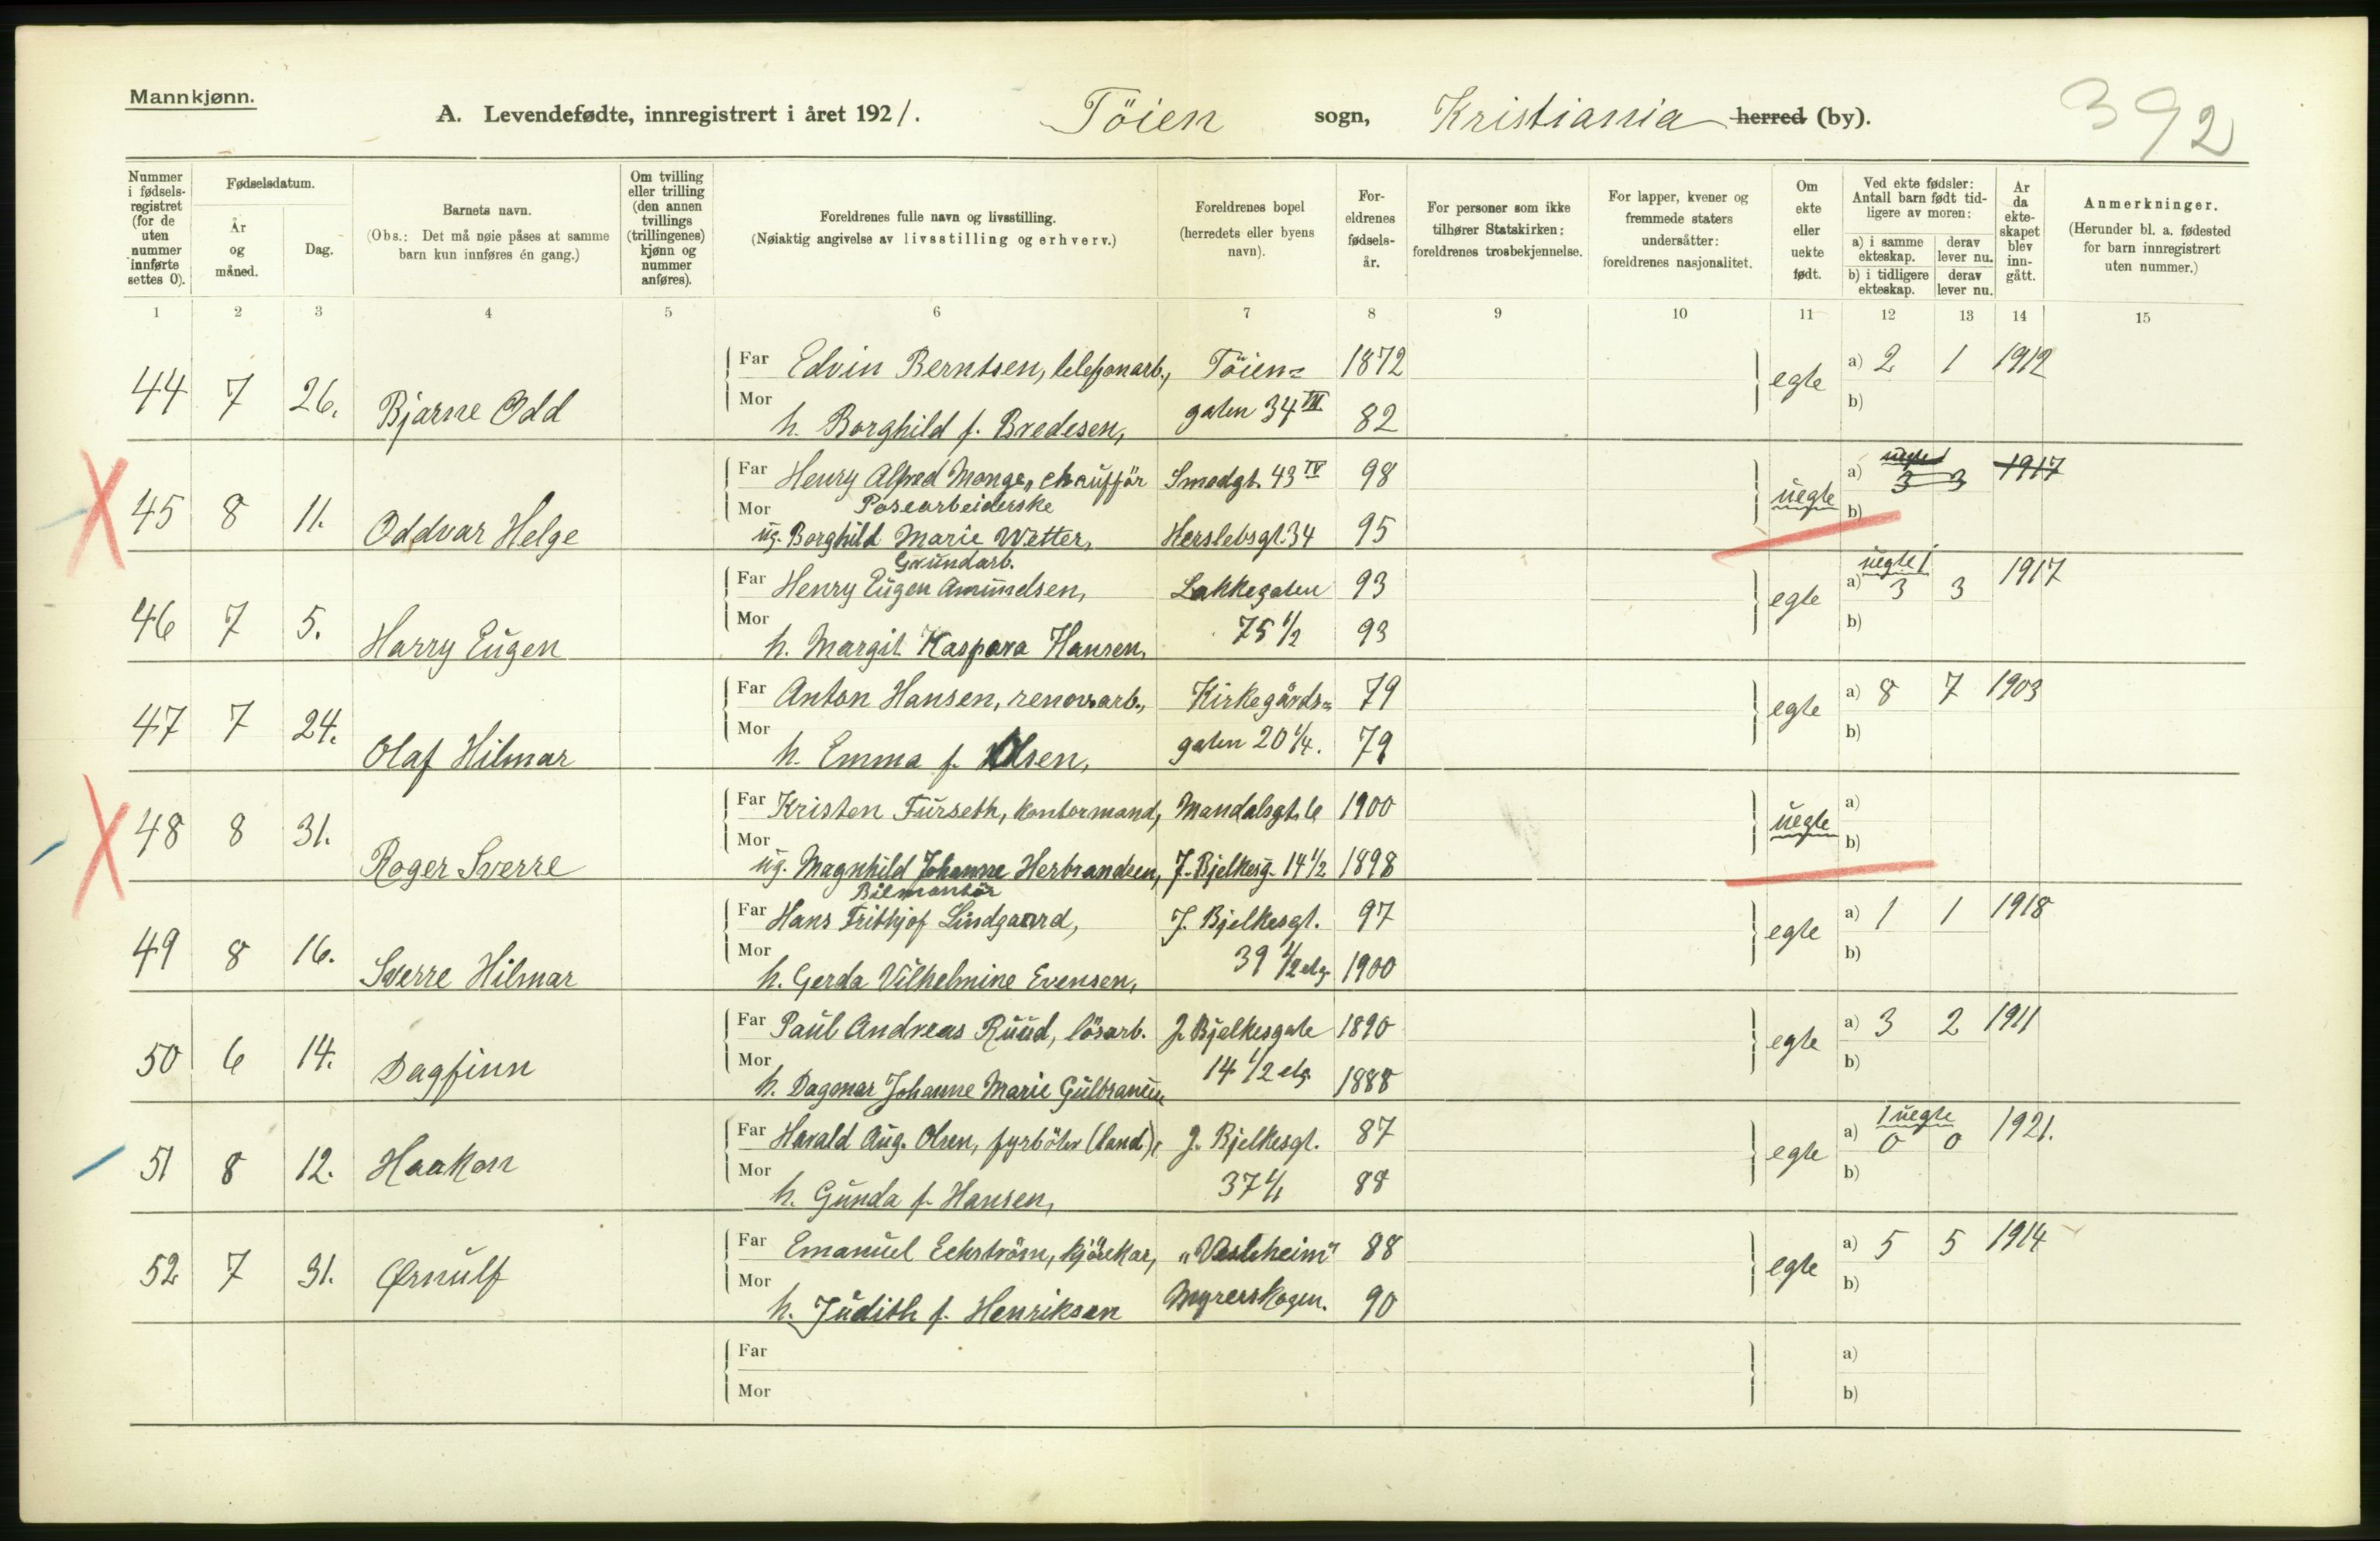 Mannkjønn.
A. Levendefødte, innregistrert i året 1921. Töien sogn, Kristiania herred (by). 392
Nummer i fødselsregistret (for de uten nummer innførte settes 0).
Fødselsdatum.
År og måned.
Dag.
Barnets navn.
(Obs.: Det må nøie påses at samme barn kun innføres én gang.)
Om tvilling eller trilling (den annen tvillings (trillingenes) kjønn og nummer anføres).
Foreldrenes fulle navn og livsstilling.
(Nøiaktig angivelse av livsstilling og erhverv.)
Foreldrenes bopel (herredets eller byens navn).
For-eldrenes fødsels-år.
For personer som ikke tilhører Statskirken: foreldrenes trosbekjennelse.
For lapper, kvener og fremmede staters undersåtter: foreldrenes nasjonalitet.
Om ekte eller uekte født.
Ved ekte fødsler: Antall barn født tid-ligere av moren:
a) i samme ekteskap. derav lever nu.
b) i tidligere ekteskap. derav lever nu.
År da ekte-skapet blev inn-gått.
Anmerkninger.
(Herunder bl. a. fødested for barn innregistrert uten nummer.)
1 2 3 4 5 6 7 8 9 10 11 12 13 14 15
Far Edvin Berntsen, telefonarb., Töien= 1872 a) 2 1 1912
44 7 26. Bjarne Odd egte
Mor h. Borghild f. Bredesen, gaten 34 III 82 b)
Far Henry Alfred Monge, chaufför Smedgt. 43 IV 98 a) uegte 1 3 3 1917
Posearbeiderske
45 8 11. Oddvar Helge uegte
Mor ug. Borghild Marie Wetter, Herslebsgt. 34 95 b)
Grundarb. uegte 1
Far Henry Eugen Amundsen, Lakkegaten 93 a) 3 3 1917
46 7 5. Harry Eugen egte
Mor h. Margit Kaspara Hansen, 75 1/2 93 b)
Far Anton Hansen, renov.arb., Kirkegårds= 79 a) 8 7 1903
47 7 24. Olaf Hilmar egte
Mor h. Emma f. Olsen, gaten 20 1/4. 79 b)
Far Kristen Furseth, kontormand, Mandalsgt. 1900 a)
48 8 31. Roger Sverre uegte
Mor ug. Magnhild Johanne Herbrandsen, J. Bjelkesg. 14 1/2 1898 b)
Bilmontör
Far Hans Frithjof Lindgaard, J. Bjelkesgt. 97 a) 1 1 1918
49 8 16. Sverre Hilmar egte
Mor h. Gerda Vilhelmine Evensen, 39 1/2 etg. 1900 b)
Far Paul Andreas Ruud, lösarb. J. Bjelkesgate 1890 a) 3 2 1911
50 6 14. Dagfinn egte
Mor h. Dagmar Johanne Marie Gulbransen 14 1/2 etg. 1888 b)
1 uegte
Far Harald Aug. Olsen, fyrböter (land), J. Bjelkesgt. 87 a) 0 0 1921.
51 8 12. Haakon egte
Mor h. Gunda f. Hansen, 37 1/1 88 b)
Far Emanuel Eckström, kjörekar, „Vestheim" 88 a) 5 5 1914
52 7 31. Ørnulf egte
Mor h. Judith f. Henriksen Myrerskogen. 90 b)
Far a)
Mor b)